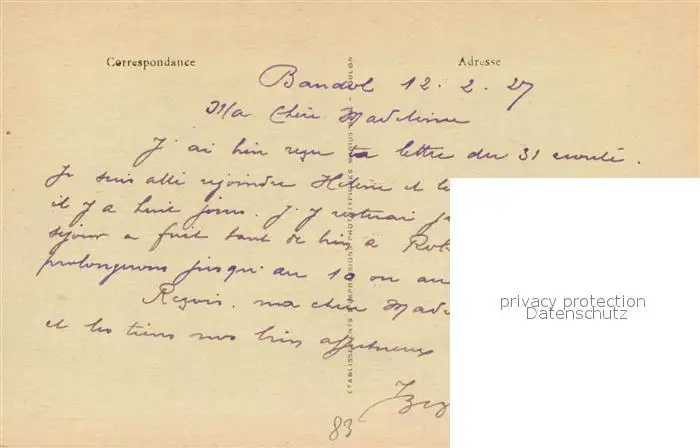 Correspondance
Adresse
Bandol 12. 2. 27
Ma chère Madeleine
J'ai bien reçu ta lettre du 31 écoulé.
Je suis allé rejoindre Hélène et le
il y a huit jours. J'y resterai
séjour a fait tant de bien à
prolongerons jusqu'au 10 ou au
Reçois, ma chère Made
et les tiens nos bien affectueux
83
ETABLISSEMENTS D'IMPRESSIONS PHOTOTYPIQUES MARIUS BAR - TOULON
privacy protection
Datenschutz